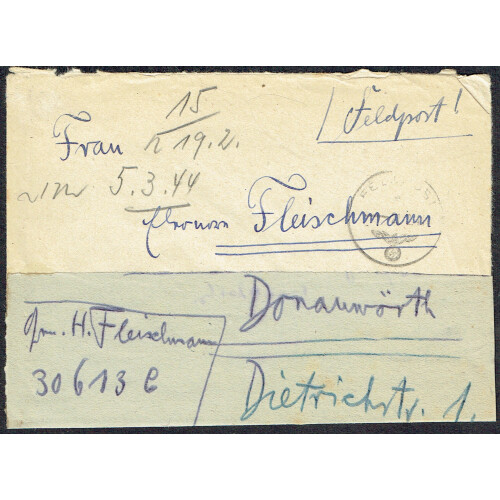 15
/ Feldpost!
Frau
19.2.
5.3.44
Eleonore Fleischmann
FELDPOST
Donauwörth
H. Fleischmann
30613 C
Dietrichstr. 1.